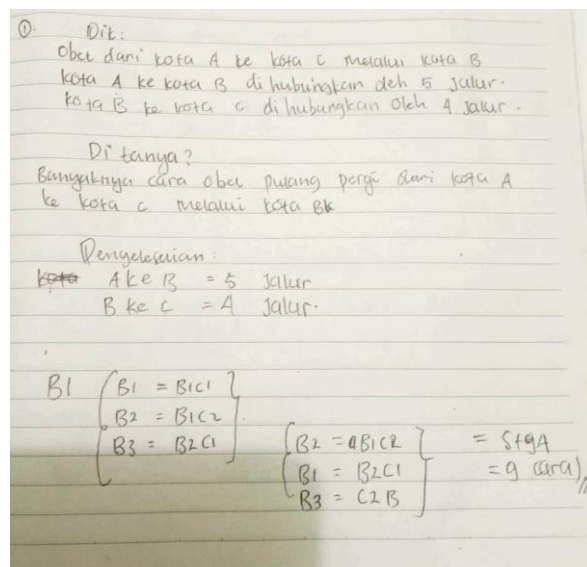 ① Dik:
Obet dari kota A ke kota C melalui kota B
kota A ke kota B dihubungkan oleh 5 Jalur.
kota B ke kota C dihubungkan oleh 4 Jalur.
Ditanya?
Banyaknya cara obet pulang pergi dari kota A
ke kota C melalui kota B
Penyelesaian:
A ke B = 5 Jalur
B ke C = 4 Jalur.
B1 B1 = B1C1
B2 = B1C2
B3 = B2C1
B2 = B1C2 = 5+4
B1 = B2C1 = 9 cara
B3 = C2B